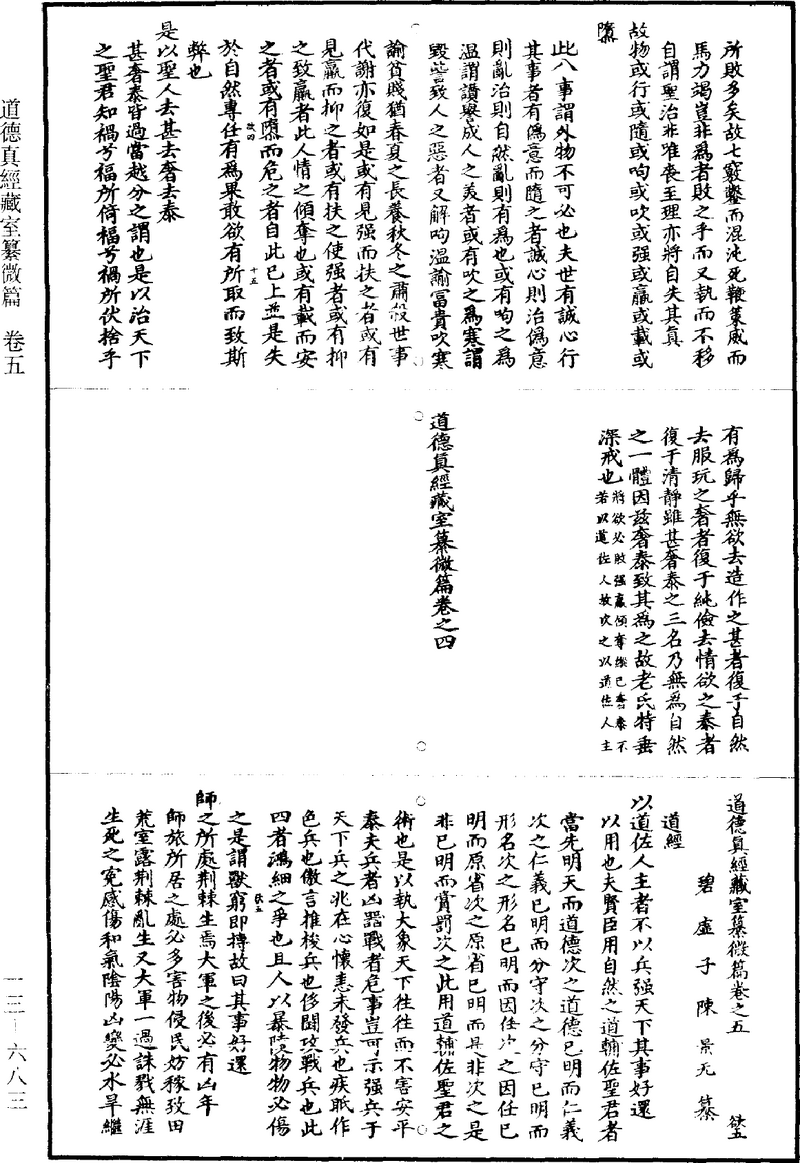 所敗多矣故七竅鑿而混沌死鞭莢威而
馬力竭豈非為者敗之乎而又執而不移
自謂聖治非唯喪至理亦將自失其真
故物或行或隨或呴或吹或强或羸或載或
隳
此八事謂外物不可必也夫世有誠心行
其事者有偽意而隨之者誠心則治偽意
則亂治則自然亂則有為也或有呴之為
温謂讚譽成人之美者或有吹之為寒謂
毀訾致人之惡者又解呴温諭冨貴吹寒
諭貧賤猶春夏之長養秋冬之肅殺世事
代謝亦復如是或有見强而扶之者或有
見羸而抑之者或有扶之使强者或有抑
之致羸者此人情之傾奪也或有載而安
之者或有隳而危之者自此已上並是失
於自然專任有為果敢欲有所取而致斯
弊也
是以聖人去甚去奢去泰
甚奢泰皆過當越分之謂也是以治天下
之聖君知禍兮福所倚福兮禍所伏捨乎
有為歸乎無欲去造作之甚者復于自然
去服玩之奢者復于純儉去情欲之泰者
復于清静雖甚奢泰之三名乃無為自然
之一體因兹奢泰致其為之故老氏特垂
深戒也將欲必敗强羸傾奪縱已奢泰不
若以道佐人故次之以道佐人主
道德真經藏室纂微篇卷之四
道德真經藏室纂微篇卷之五
碧虛子陳景元纂
道經
以道佐人主者不以兵强天下其事好還
以用也夫賢臣用自然之道輔佐聖君者
當先明天而道德次之道德已明而仁義
次之仁義已明而分守次之分守已明而
形名次之形名已明而因任次之因任已
明而原省次之原省已明而是非次之是
非已明而賞罰次之此用道輔佐聖君之
術也是以執大象天下往往而不害安平
泰夫兵者凶器戰者危事豈可示强兵于
天下兵之兆在心懷恚未發兵也疾眡作
色兵也傲言推梭兵也侈鬪攻戰兵也此
四者鴻細之爭也且人以暴陵物物必傷
之是謂獸窮即搏故曰其事好還
師之所處荆棘生焉大軍之後必有凶年
師旅所居之處必多害物侵民妨稼致田
荒室露荆棘亂生又大軍一過誅戮無涯
生死之寃感傷和氣陰陽凶變必水旱繼
道德真經藏室纂微篇 卷五
一三—六八三